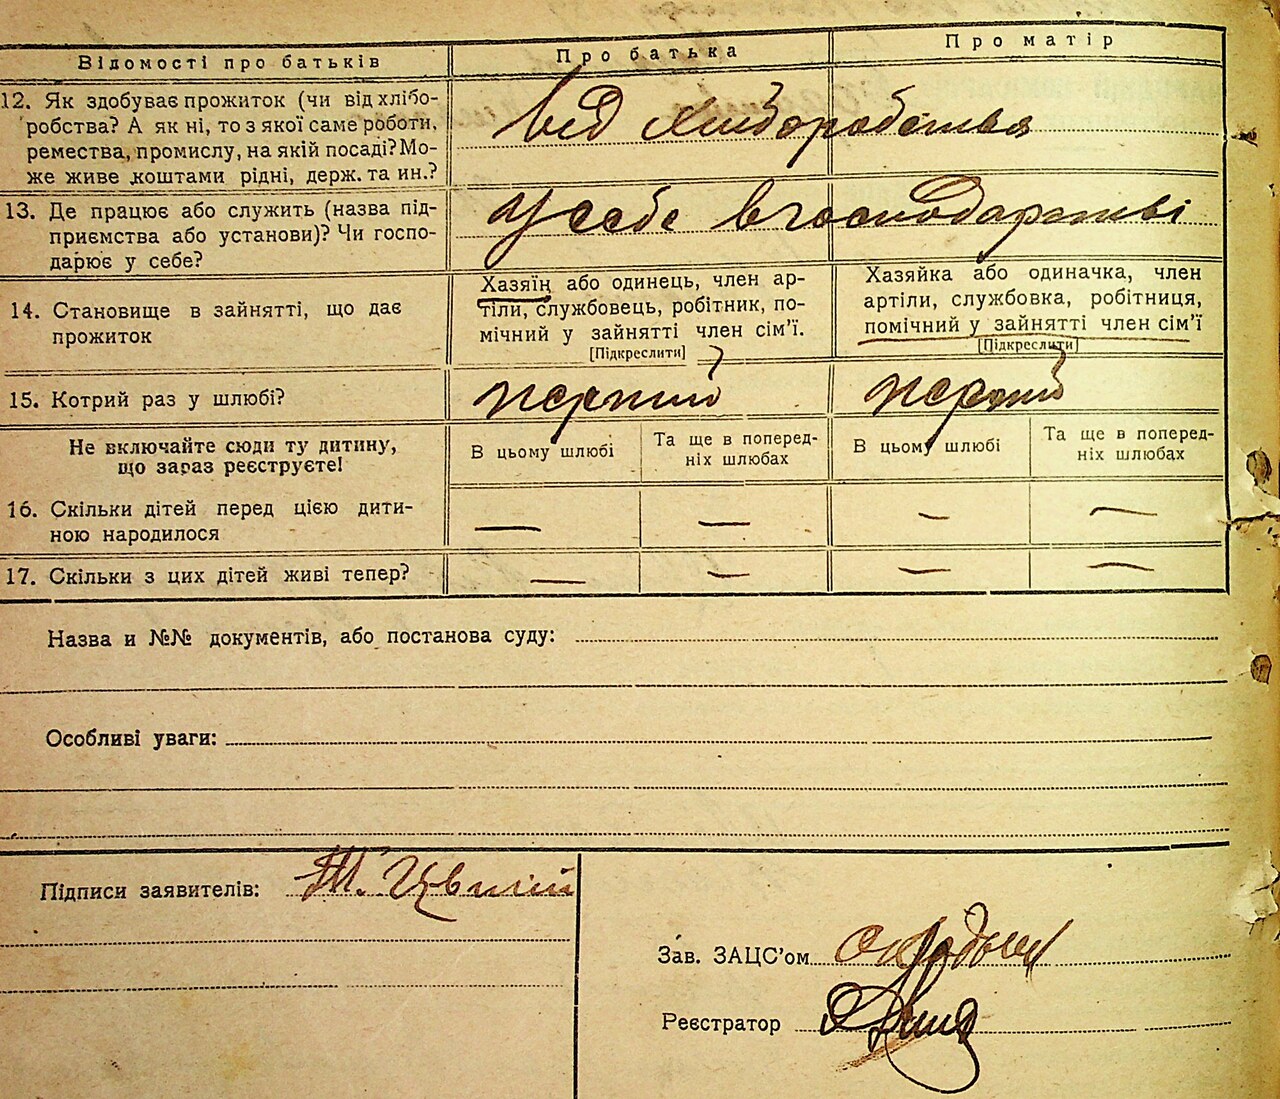 Відомості про батьків
Про батька
Про матір
12. Як здобуває прожиток (чи від хлібо-
робства? А як ні, то з якої саме роботи,
ремества, промислу, на якій посаді? Мо-
же живе коштами рідні, держ. та ин.?
від хліборобства
13. Де працює або служить (назва під-
приємства або установи)? Чи госпо-
дарює у себе?
У себе в господарстві
14. Становище в зайнятті, що дає
прожиток
Хазяїн або одинець, член ар-
тіли, службовець, робітник, по-
мічний у зайнятті член сім’ї.
[Підкреслити]
Хазяйка або одиначка, член
артіли, службовка, робітниця,
помічний у зайнятті член сім’ї
[Підкреслити]
15. Котрий раз у шлюбі?
перший
перший
Не включайте сюди ту дитину,
що зараз реєструєте!
В цьому шлюбі
Та ще в поперед-
ніх шлюбах
В цьому шлюбі
Та ще в поперед-
ніх шлюбах
16. Скільки дітей перед цією дити-
ною народилося
— — — —
17. Скільки з цих дітей живі тепер?
— — — —
Назва и №№ документів, або постанова суду:
Особливі уваги:
Підписи заявителів:
Зав. ЗАЦС’ом
Реєстратор